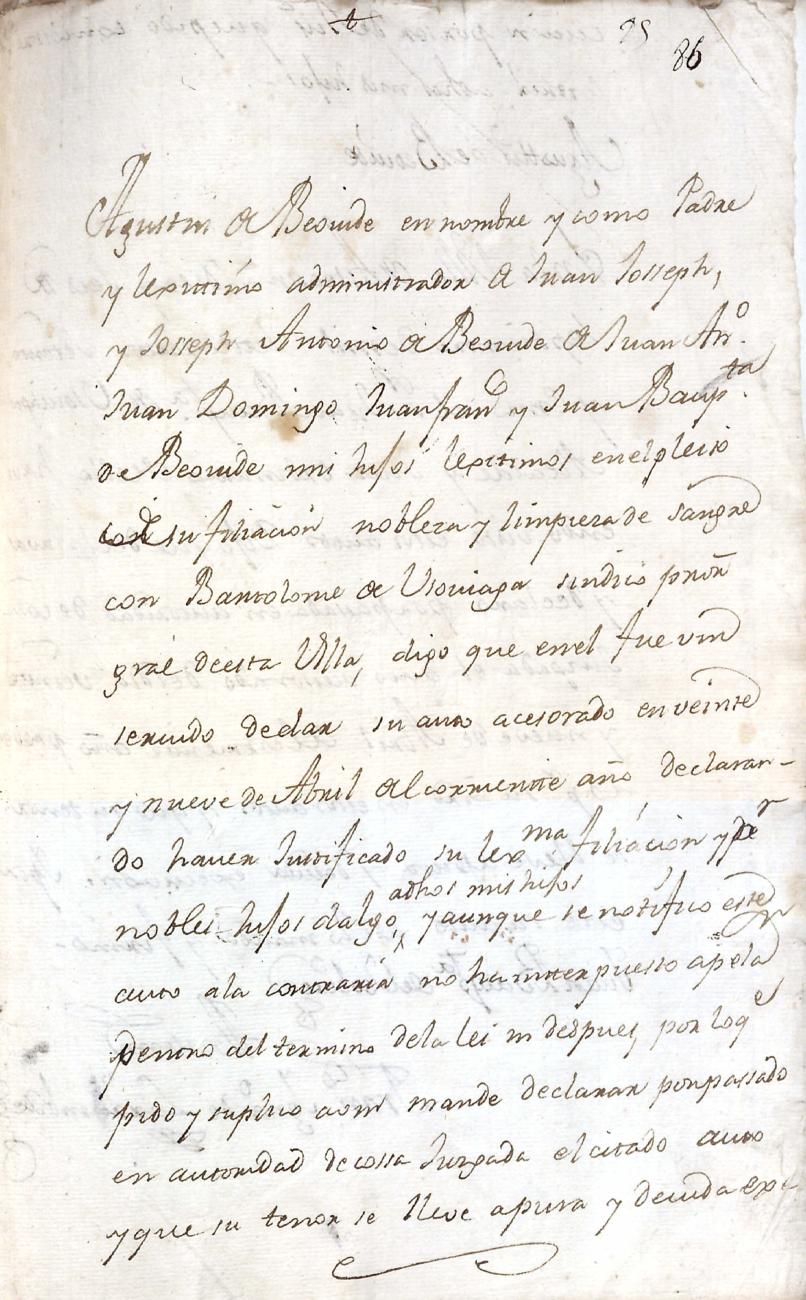 †
86
Agustin de Beovide en nombre y como Padre
y lexittimo administrador de Juan Josseph,
y Josseph Antonio de Beovide de Juan Anº.
Juan Domingo Juan franco y Juan Baupta.
de Beovide mis hijos lexitimos en el pleito
de su filiacion nobleza y limpieza de sangre
con Bartolome de Usoviaga sindico pror
gral de esta Villa, digo que en el fue vm
servido de dar su auto acesorado en veinte
y nueve de Abril del corriente año, declaran-
do haver Justificado su lexma filiacion y ser
nobles hijos dalgo, adhos mis hijos y aunque se notifico este
auto ala contraria no ha intterpuesto apelaon
Dentro del termino de la lei ni despues, por loqe
pido y suplico a vm mande declarar por passado
en autoridad de cossa Juzgada el citado auto
y que su tenor se lleve a pura y devida exe